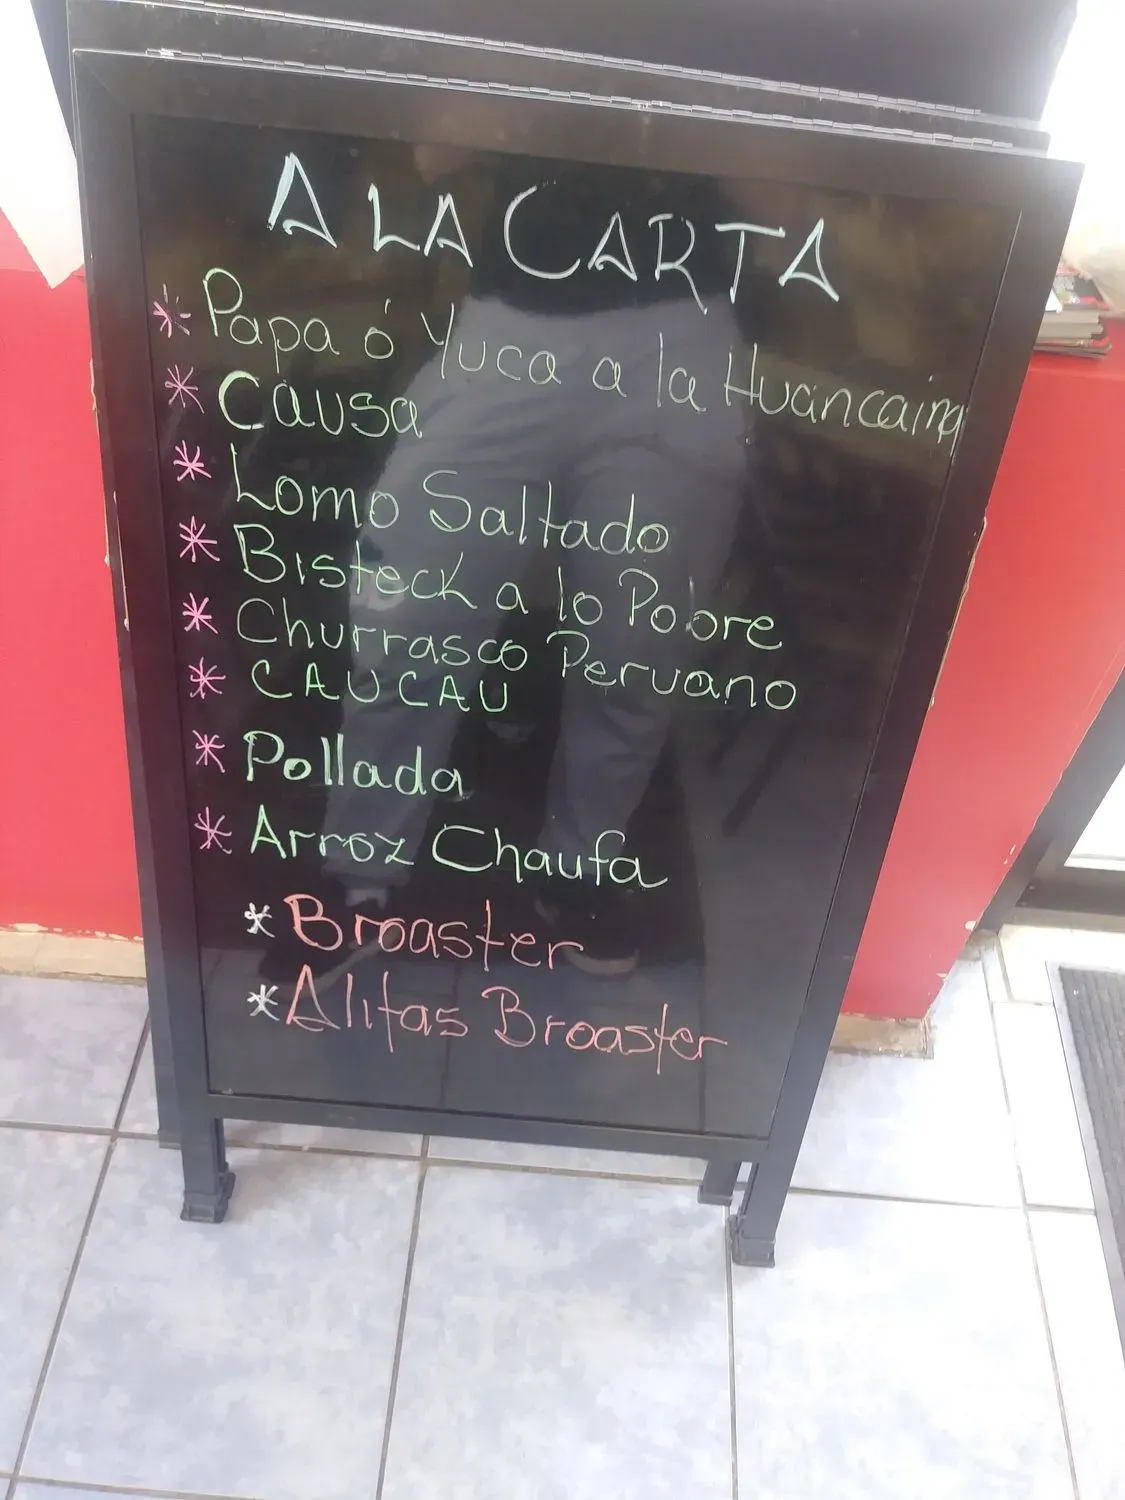 A LA CARTA
* Papa ó Yuca a la Huancaina
* Causa
* Lomo Saltado
* Bisteck a lo Pobre
* Churrasco Peruano
* CAUCAU
* Pollada
* Arroz Chaufa
* Broaster
* Alitas Broaster